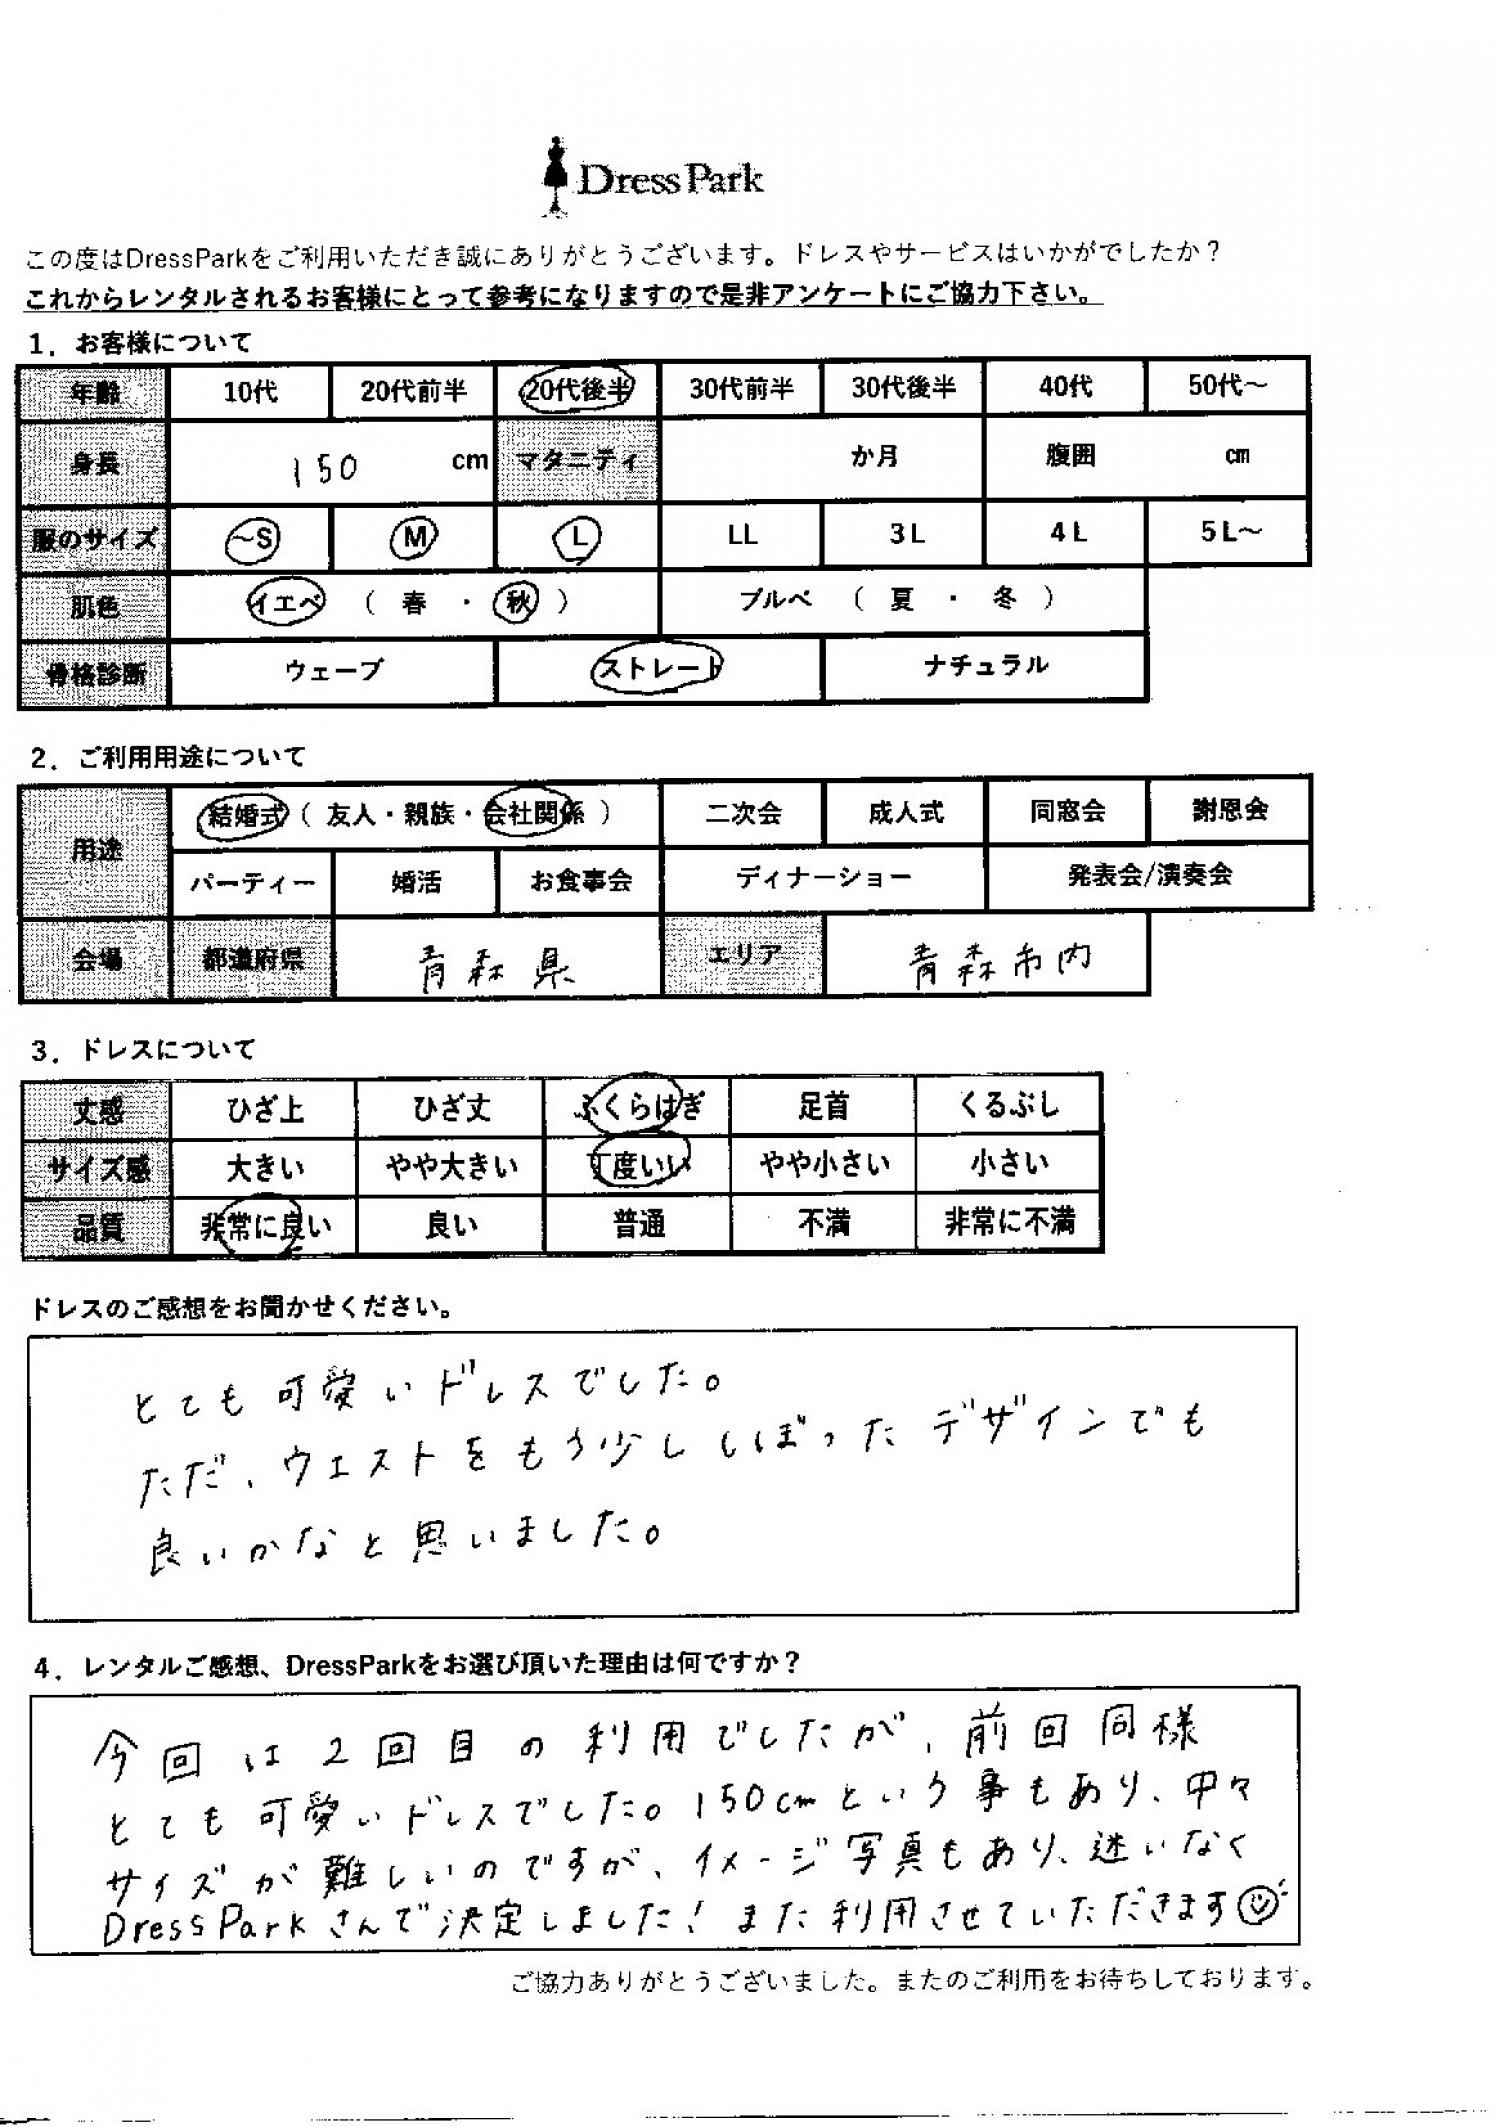 Dress Park
この度はDressParkをご利用いただき誠にありがとうございます。ドレスやサービスはいかがでしたか？
これからレンタルされるお客様にとって参考になりますので是非アンケートにご協力下さい。
1．お客様について
年齢 10代 20代前半 20代後半 30代前半 30代後半 40代 50代～
身長 150 cm マタニティ か月 腹囲 cm
服のサイズ ～S M L LL 3L 4L 5L～
肌色 イエベ （ 春 ・ 秋 ） ブルベ （ 夏 ・ 冬 ）
骨格診断 ウェーブ ストレート ナチュラル
2．ご利用用途について
用途 結婚式（ 友人・親族・会社関係 ） 二次会 成人式 同窓会 謝恩会
パーティー 婚活 お食事会 ディナーショー 発表会/演奏会
会場 都道府県 青森県 エリア 青森市内
3．ドレスについて
丈感 ひざ上 ひざ丈 ふくらはぎ 足首 くるぶし
サイズ感 大きい やや大きい 丁度いい やや小さい 小さい
品質 非常に良い 良い 普通 不満 非常に不満
ドレスのご感想をお聞かせください。
とても可愛いドレスでした。
ただ、ウエストをもう少ししぼったデザインでも
良いかなと思いました。
4．レンタルご感想、DressParkをお選び頂いた理由は何ですか？
今回は2回目の利用でしたが、前回同様
とても可愛いドレスでした。150cmという事もあり、中々
サイズが難しいのですが、イメージ写真もあり、迷いなく
DressParkさんで決定しました！また利用させていただきます
ご協力ありがとうございました。またのご利用をお待ちしております。